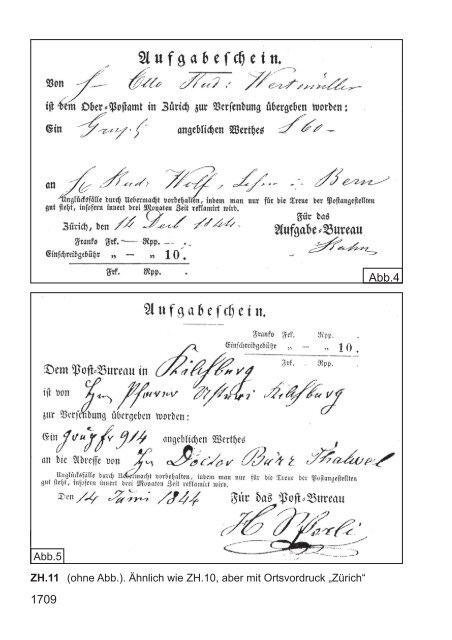 Aufgabeschein.
Von H Otto Rud: Wertmüller
ist dem Ober-Postamt in Zürich zur Versendung übergeben worden:
Ein angeblichen Werthes f 60 –
an H Rud: Wolf, in Bern
Unglücksfälle durch Uebermacht vorbehalten, indem man nur für die Treue der Postangestellten
gut steht, insofern innert drei Monaten Zeit reklamirt wird.
Für das
Zürich, den 14 Dec 1844.
Aufgabe-Bureau
Franko Frk. — Rpp.
Einschreibgebühr „ – „ 10.
Frk. Rpp.
Abb.4
Aufgabeschein.
Franko Frk. Rpp.
Einschreibgebühr „ — „ 10.
Frk. Rpp.
Dem Post-Bureau in Kilchburg
ist von Hrn Pfarrer Kilchburg
zur Versendung übergeben worden:
Ein 914 angeblichen Werthes
an die Adresse von Hn Doctor Thalwel
Unglücksfälle durch Uebermacht vorbehalten, indem man nur für die Treue der Postangestellten
gut steht, insofern innert drei Monaten Zeit reklamirt wird.
Den 14 Juni 1844 Für das Post-Bureau
Abb.5
ZH.11 (ohne Abb.). Ähnlich wie ZH.10, aber mit Ortsvordruck „Zürich“
1709